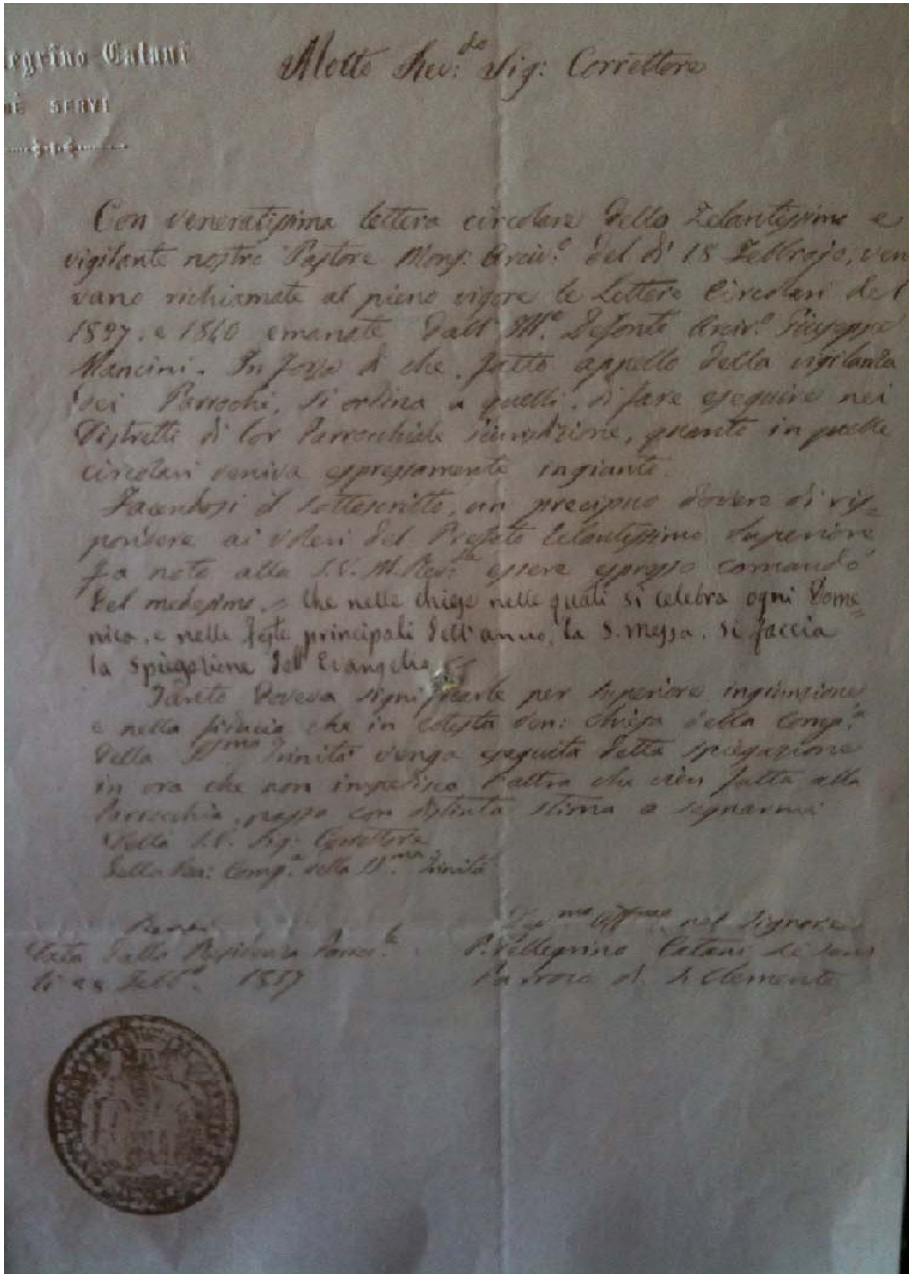 egrino Catani
DÈ SERVI
Molto Rev: do Sig: Correttore
Con veneratissima lettera circolare dello Zelantissimo e
vigilante nostro Pastore Mons: Arciv.o del dì 18 Febbrajo, ven
vano richiamate al pieno vigore le Lettere Circolari del
e 1840 emanate dall' Defonto Arciv.o Giuseppe
Mancini. In forza di che, fatto appello della vigilanza
dei Parrochi, si ordina a quelli, di fare eseguire nei
Distretti di lor Parrocchiale giurisdizione, quanto in quelle
circolari veniva espressamente ingiunto.
Facendosi il sottoscritto, un precipuo dovere di ris=
pondere ai voleri del Prefato Zelantissimo Superiore
fa noto alla S.V. M. Rev: essere espresso comando
del medesimo, che nelle chiese nelle quali si celebra ogni Dome=
nica, e nelle feste principali dell'anno, la S. Messa, si faccia
la spiegazione dell' Evangelio
Tanto doveva significarle per superiore ingiunzione
e nella fiducia che in cotesta ven: Chiesa della Comp.a
della SS.ma Trinità venga eseguita detta spiegazione
in ora che non impedisca l'altra che vien fatta alla
Parrocchia, passo con distinta stima a segnarmi
Della S.V. Sig: Correttore
della Ven: Comp.a della SS.ma Trinità
nel Signore
Data dalla Residenza Parroc.le
P. Pellegrino Catani de Servi
Febb.o
Parroco di S. Clemente